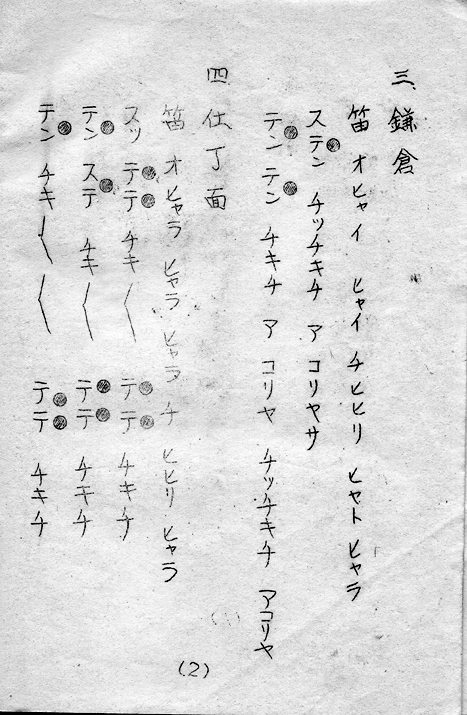 三、鎌倉
笛 オヒャイ ヒャイ チヒヒリ ヒャト ヒャラ
ステン チッチキチ ア コリヤサ
テン テン チキチ ア コリヤ チッチキチ アコリヤ
四、仕丁面
笛 オヒャラ ヒャラ ヒャラ チ ヒヒリ ヒャラ
スッ テテ チキ〱 テテ チキチ
テン ステ チキ〱 テテ チキチ
テン チキ〱〱 テテ チキチ
(2)